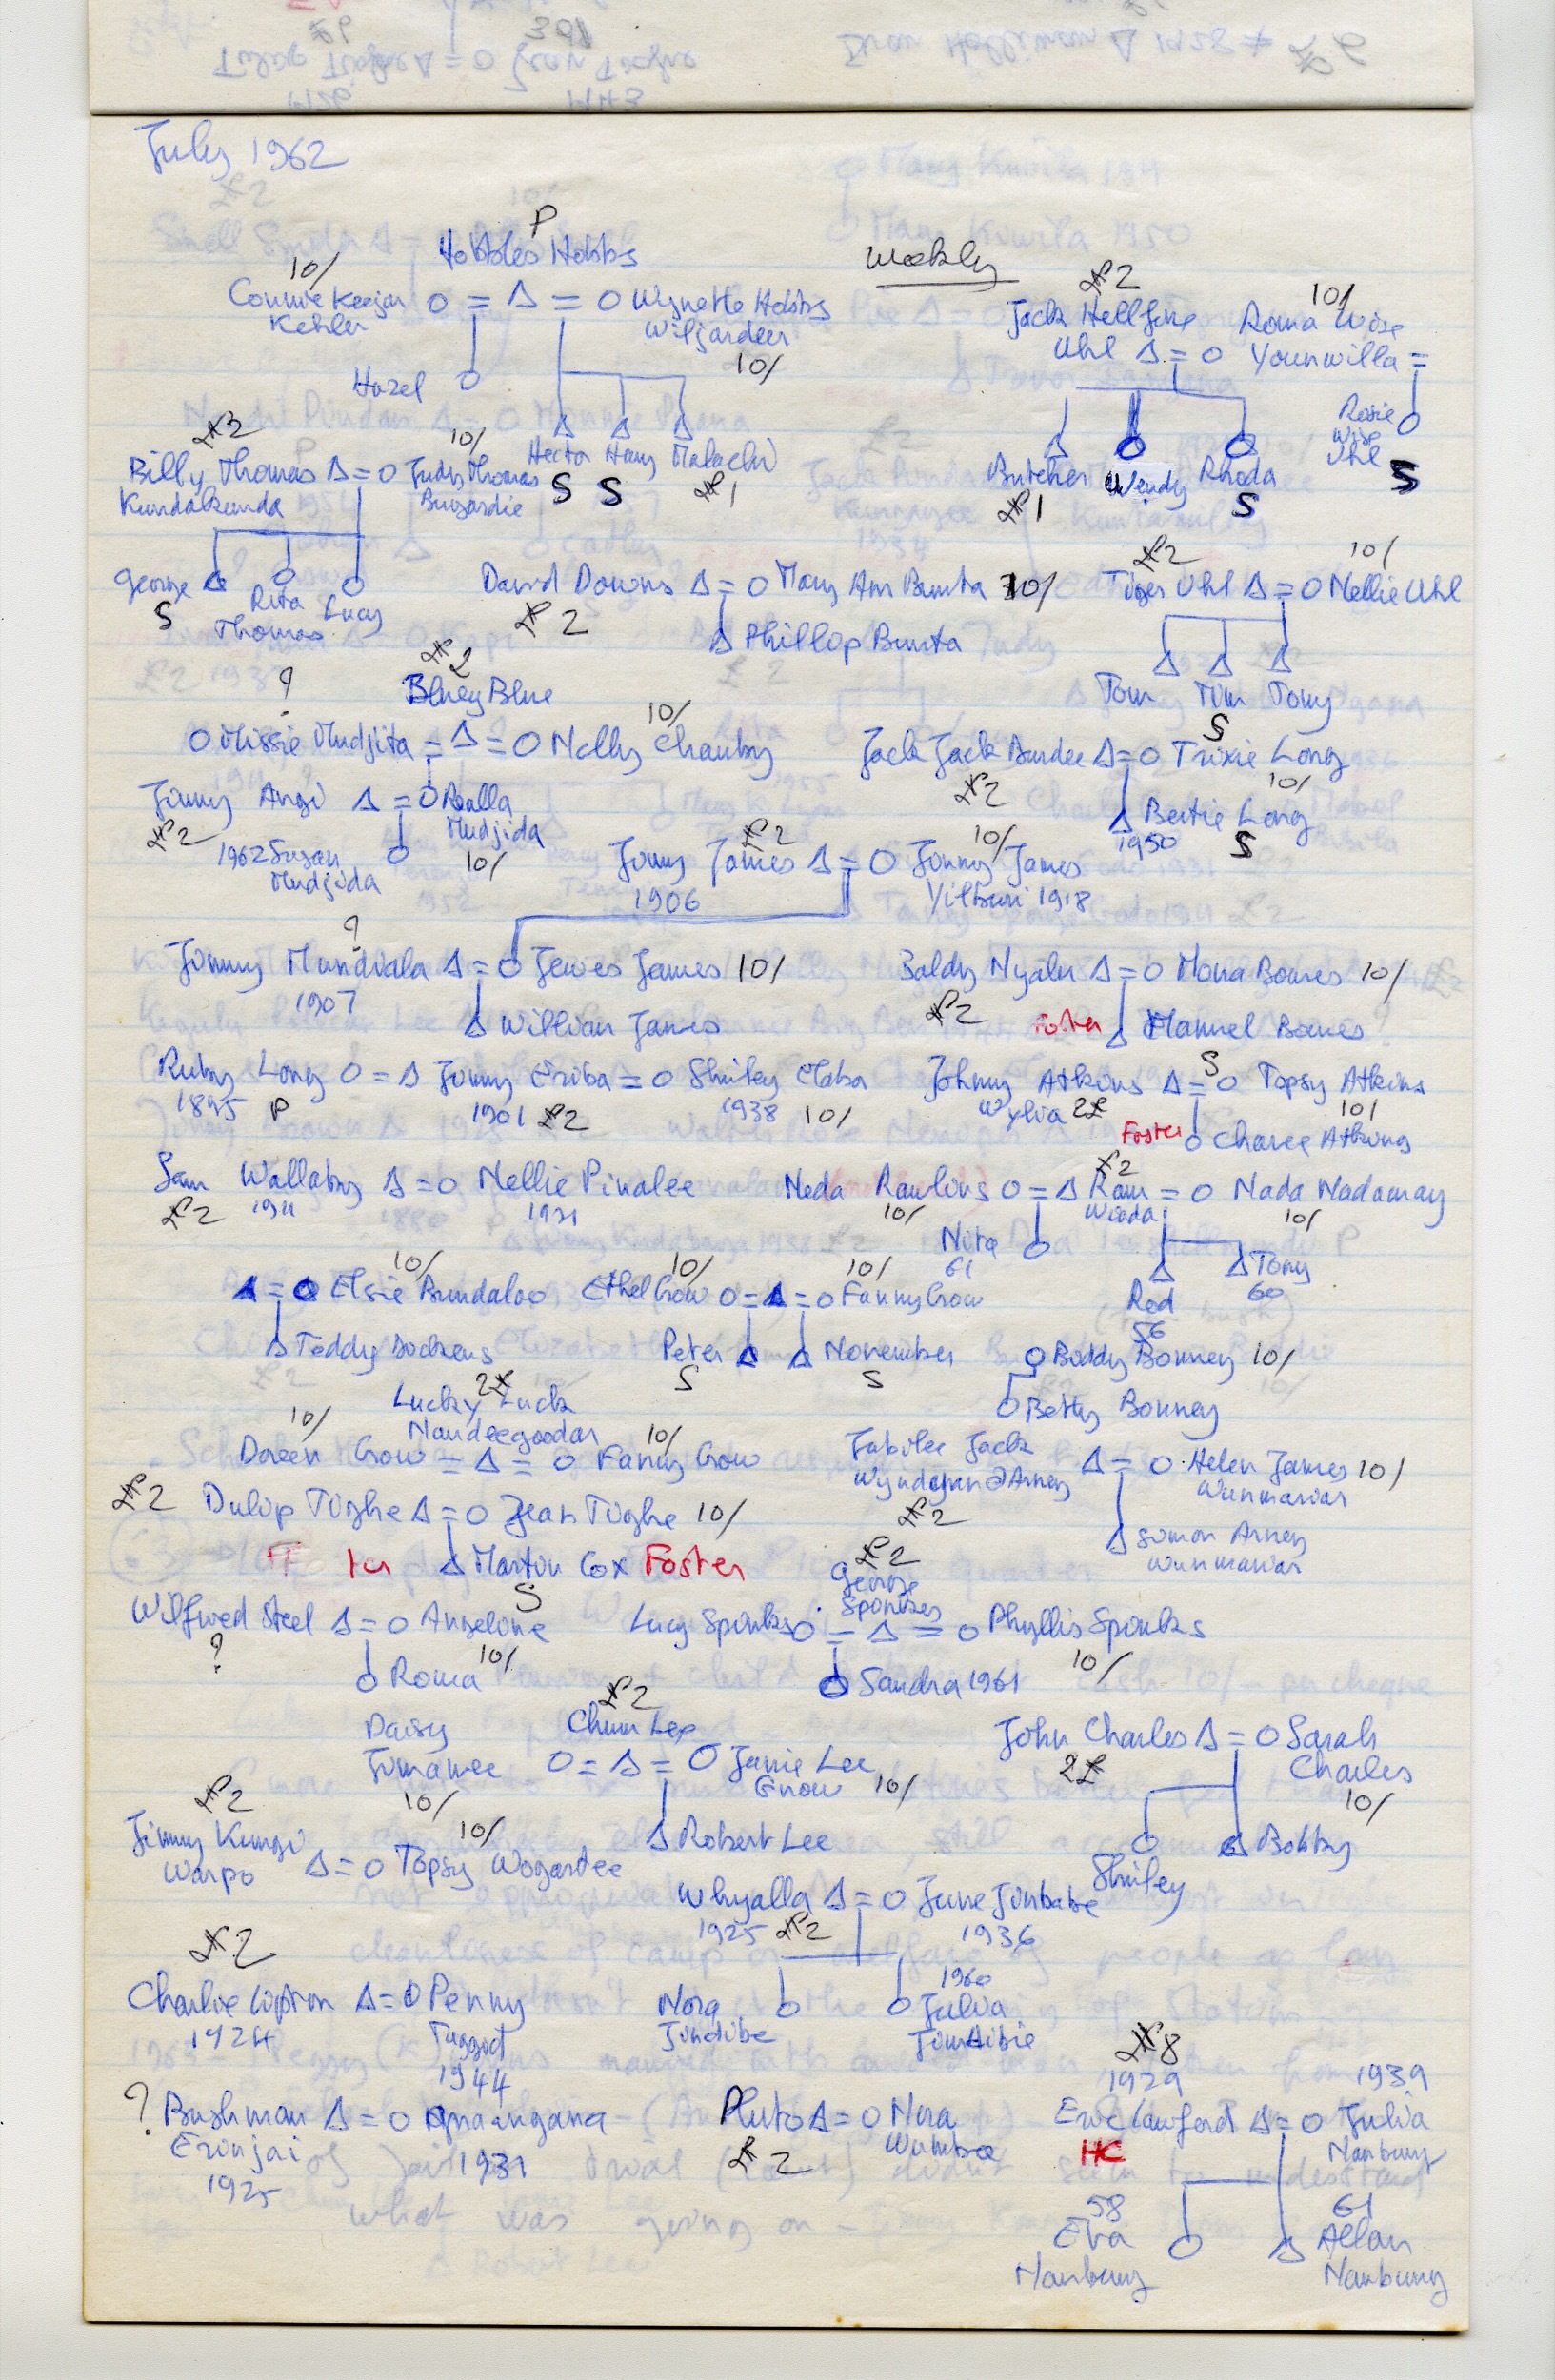 July 1962
P
Hobbles Hobbs
Weekly
10/
£2
10/
Connie Keejan O = Δ = O Wynette Hobbs
Kehler
Wiljardeer
10/
Jack Hellfire
Roma Wise
Uhl Δ = O Younwilla =
Hazel
Rosie
Wise
Uhl
S
£2
10/
Hecta Harry Malachi
S S £1
Billy Thomas Δ = O Judy Thomas
Kundakunda
Bungardie
Butcher Wendy Rhoda
£1
S
George
S
Rita
Thomas
Lucy
David Downs Δ = O Mary Ann Bunta 10/
£2
Phillop Bunta
£2
10/
Tiger Uhl Δ = O Nellie Uhl
Tom Tim Tony
S
?
£2
Bluey Blue
10/
O Missie Mudjita = Δ = O Nelly Chauby
Jack Jack Burdee Δ = O Trixie Long
£2
10/
Jimmy Angi Δ = O Roalla
Mudjida
£2
10/
1962 Susan
Mudjida
Bertie Long
1950
S
£2
10/
Jimmy James Δ = O Jinny James
1906
Yilburi 1918
?
Jimmy Mundiala Δ = O Jewes James 10/
1907
William James
Baldy Nyalu Δ = O Mona Bowes 10/
£2
Foster Δ Manuel Bowes
S
Ruby Long O = Δ Jimmy Eriba = O Shirley Maba
1895 P 1901 £2 1938 10/
Johnny Atkins Δ = O Topsy Atkins
Wylia 2£
10/
Foster O Charee Atkins
Sam Wallaby Δ = O Nellie Pinalee
£2 1911 1921
£2
Neda Rawlins O = Δ Ram = O Nada Nadamay
10/
Wooda
10/
Nita
61
Red
56
Tony
60
10/
10/
10/
Δ = O Elsie Bundaloo
Ethel Crow O = Δ = O Fanny Crow
Δ Teddy Dockens
Peter Δ Δ November
S S
O Biddy Bonney 10/
O Betty Bonney
2£
Lucky Luck
Nandeegoodar
10/
10/
Doreen Crow = Δ = O Fanny Crow
Jubilee Jack Δ = O Helen James 10/
Wunmariar
£2
Simon Arney
Wunmariar
£2 Dulip Tighe Δ = O Jean Tighe 10/
Δ Martin Cox Foster
S
£2
George
Sponkes
Wilfred Steel Δ = O Angeline
?
10/
O Roma
Lucy Spinks O = Δ = O Phyllis Spinks
10/
O Sandra 1961
£2
Daisy
Jumawee
Chum Lee
O = Δ = O Janie Lee
Gnow 10/
10/
Δ Robert Lee
John Charles Δ = O Sarah
Charles
2£
10/
Shirley
Δ Bobby
£2
10/
Jimmy Kungi
Warpo
Δ = O Topsy Wogartee
Whyalla Δ = O June Jinbabe
1925 £2 1936
Nora
Jindibe
1960
Julia
Jimdibie
£2
Charlie Lipton Δ = O Penny
1924
Taggot
1944
? Bushman Δ = O Gnaangana
Erinjai
1925
1931
Pluto Δ = O Nora
Wumbee
£2
£8
1929
1939
Eric Lawford Δ = O Julia
HC
Nanbury
58
Eva
Nanbury
61
Allan
Nanbung